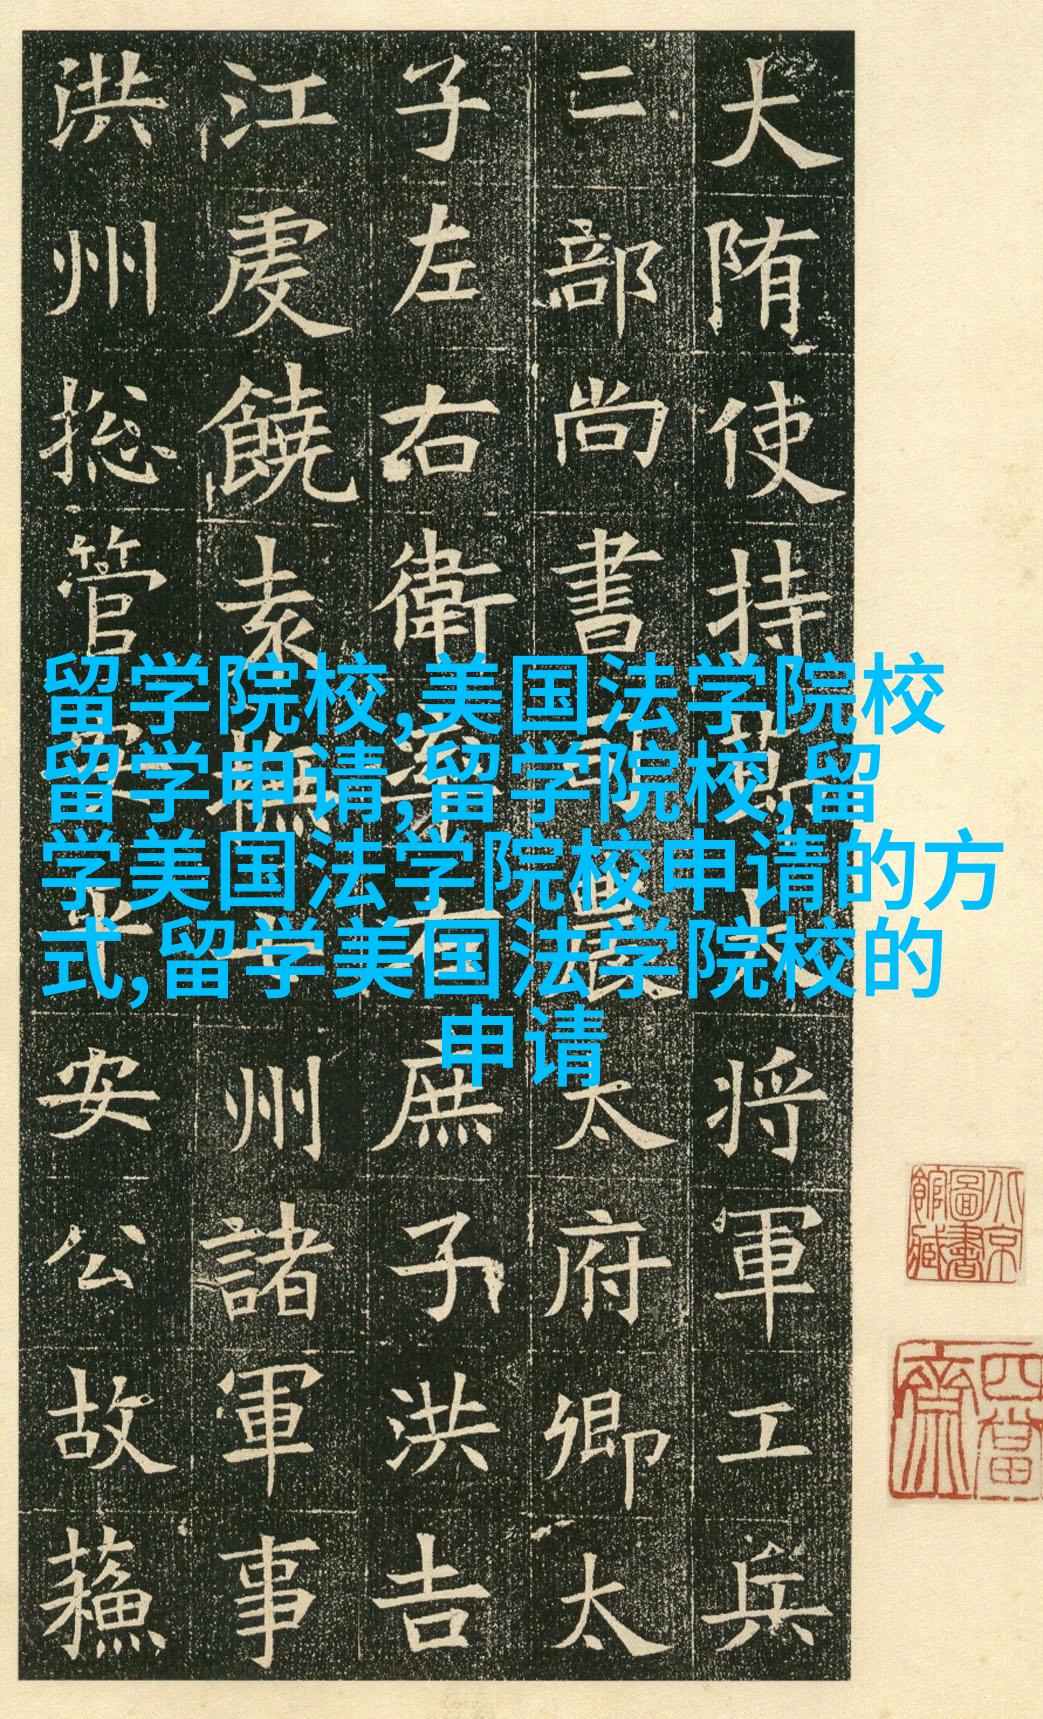 大陏使持将軍工兵
二部尚書太府卿太
子左右衛庶子洪吉
江虔饒袁撫州諸軍事
洪州捴管安公故蘓
留学院校,美国法学院校
留学申请,留学院校,留
学美国法学院校申请的方
式,留学美国法学院校的
申请
北京
圖書
館藏
四當
齋